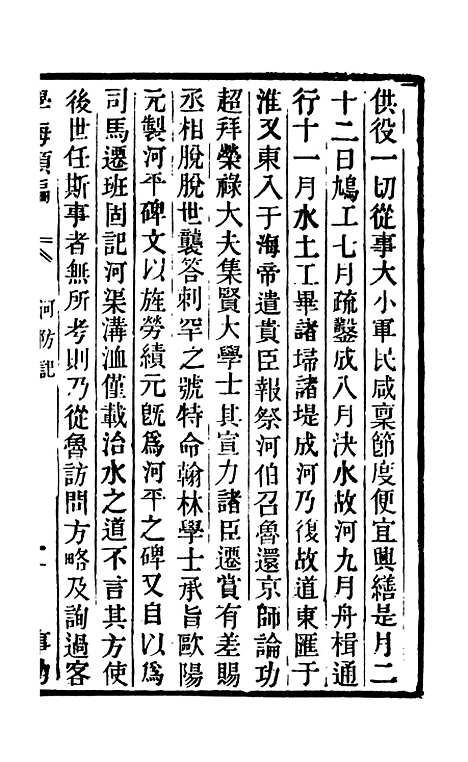 供役一切從事大小軍民咸稟節度便宜興繕是月二
十二日鳩工七月疏鑿成八月決水故河九月舟楫通
行十一月水土工畢諸埽諸堤成河乃復故道東匯于
淮又東入于海帝遣貴臣報祭河伯召魯還京師論功
超拜榮祿大夫集賢大學士其宣力諸臣遷賞有差賜
丞相脫脫世襲答剌罕之號特命翰林學士承旨歐陽
元製河平碑文以旌勞績元旣爲河平之碑又自以爲
司馬遷班固記河渠溝洫僅載治水之道不言其方使
後世任斯事者無所考則乃從魯訪問方略及詢過客
學海類編
河防記
一
事功